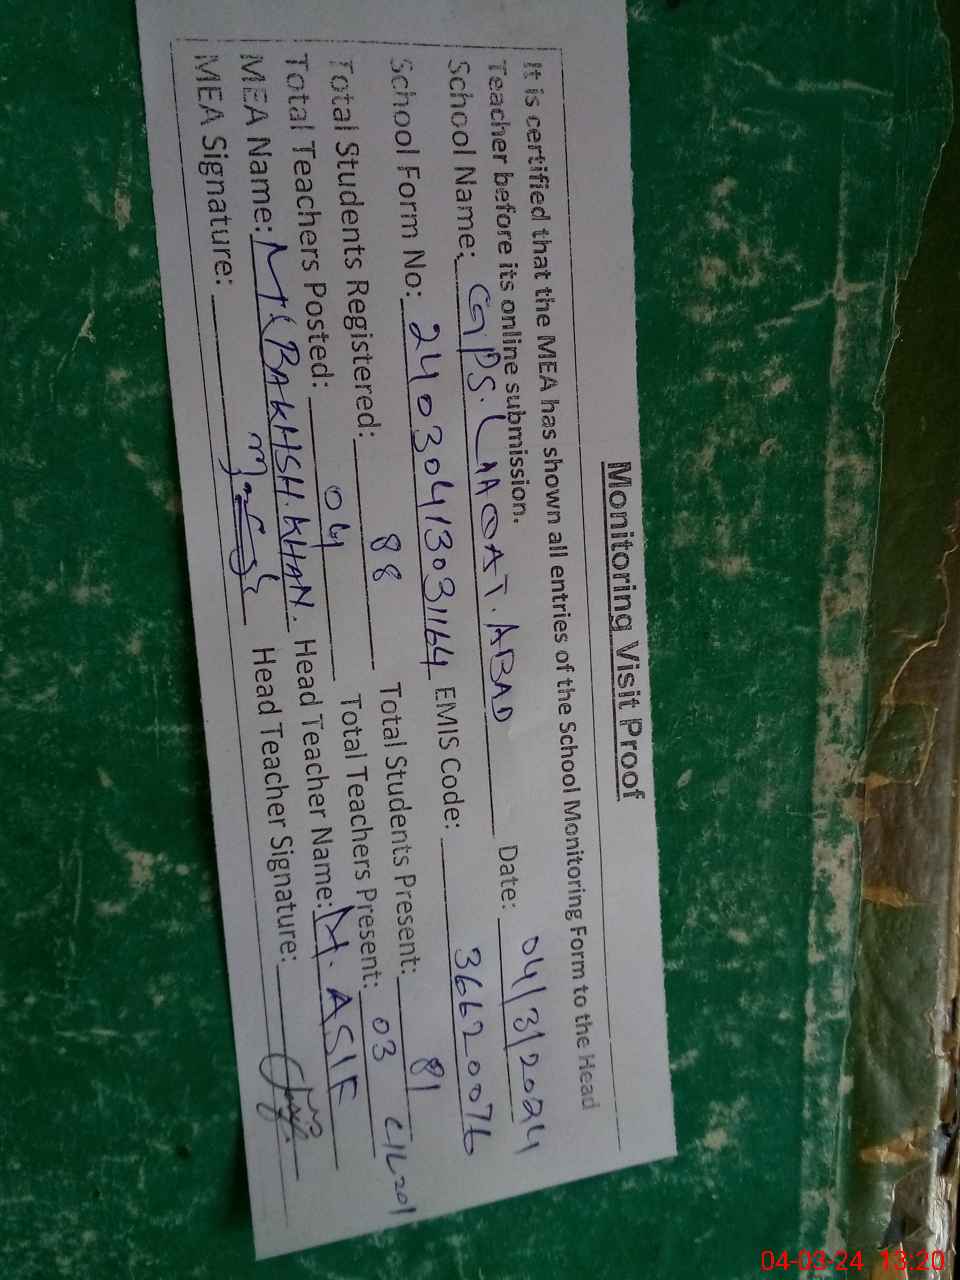 Monitoring Visit Proof
It is certified that the MEA has shown all entries of the School Monitoring Form to the Head
Teacher before its online submission.
School Name: GPS. LAQAT. ABAD Date: 04/3/2024
School Form No: 24030413031164 EMIS Code: 36620076
Total Students Registered: 88 Total Students Present: 81
Total Teachers Posted: 04 Total Teachers Present: 03
MEA Name: BAKHSH. KHAN. Head Teacher Name: M. ASIF
MEA Signature: Head Teacher Signature:
04-03-24 13:20